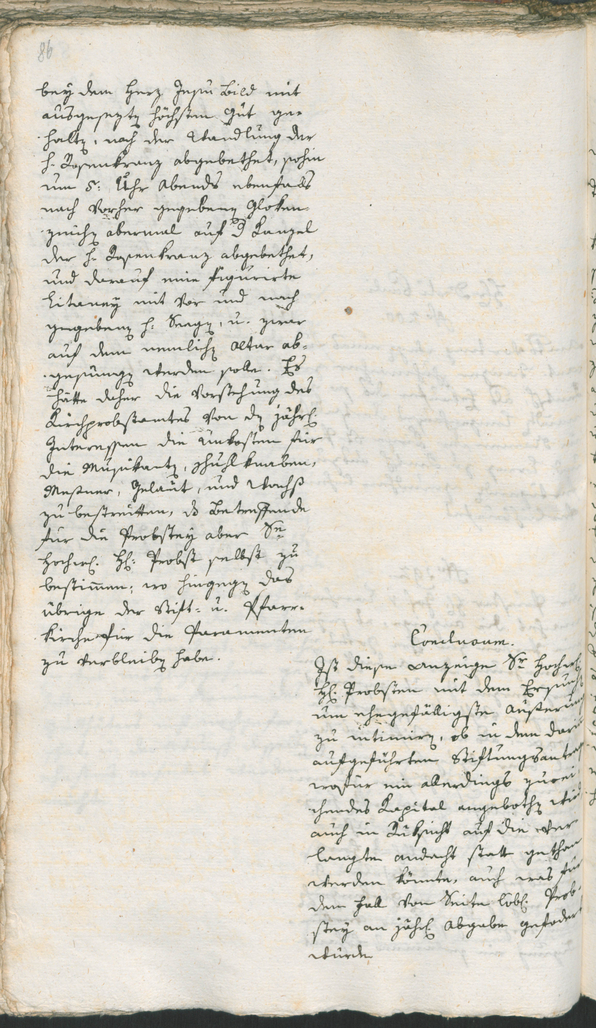 86
bey dem Herz Jesu Bild mit
ausgesezty höchsten Gut ge-
halty, nach der Wandlung der
h. Rosenkranz abgebethet, sohin
um 5: Uhr Abends ebenfalls
nach vorher gegebeny Gloken
zeichy abermal auf d Kanzel
der h. Rosenkranz abgebethet,
und darauf eine figurirte
Litaney mit vor und nach
gegebeny h. Seegy, u. zwar
auf dem nemlichy Altar ab-
gesungy werden solle. Es
hätte daher die Vorstehung des
Kirchprobstamtes von dy jährl.
Interessen die Unkosten für
die Musikanty, Schuhlknaben,
Meßner, Geläut, und Wachs
zu bestreitten, ds Betreffende
für die Probstey aber Sr
Hochw. HH: Probst selbst zu
bestimmen; wo hingegy das
übrige der Stift- u. Pfarr-
kirche für die Paramenten
zu verbleiby habe.
Conclusum.
Ist diese Anzeige Sr Hochw.
HH. Probsten mit dem Ersuch
um ehegefälligste Äußerung
zu intimiry, ob in dem darin
aufgeführten Stiftungsantrag
wofür ein allerdings zurei
chendes Kapital angebothy wird
auch in Rüksicht auf die ver
langte Andacht statt gethan
werden könnte, auch was für
dem Fall von Seite löbl. Prob-
stey an jährl. Abgabe gefodert
würde